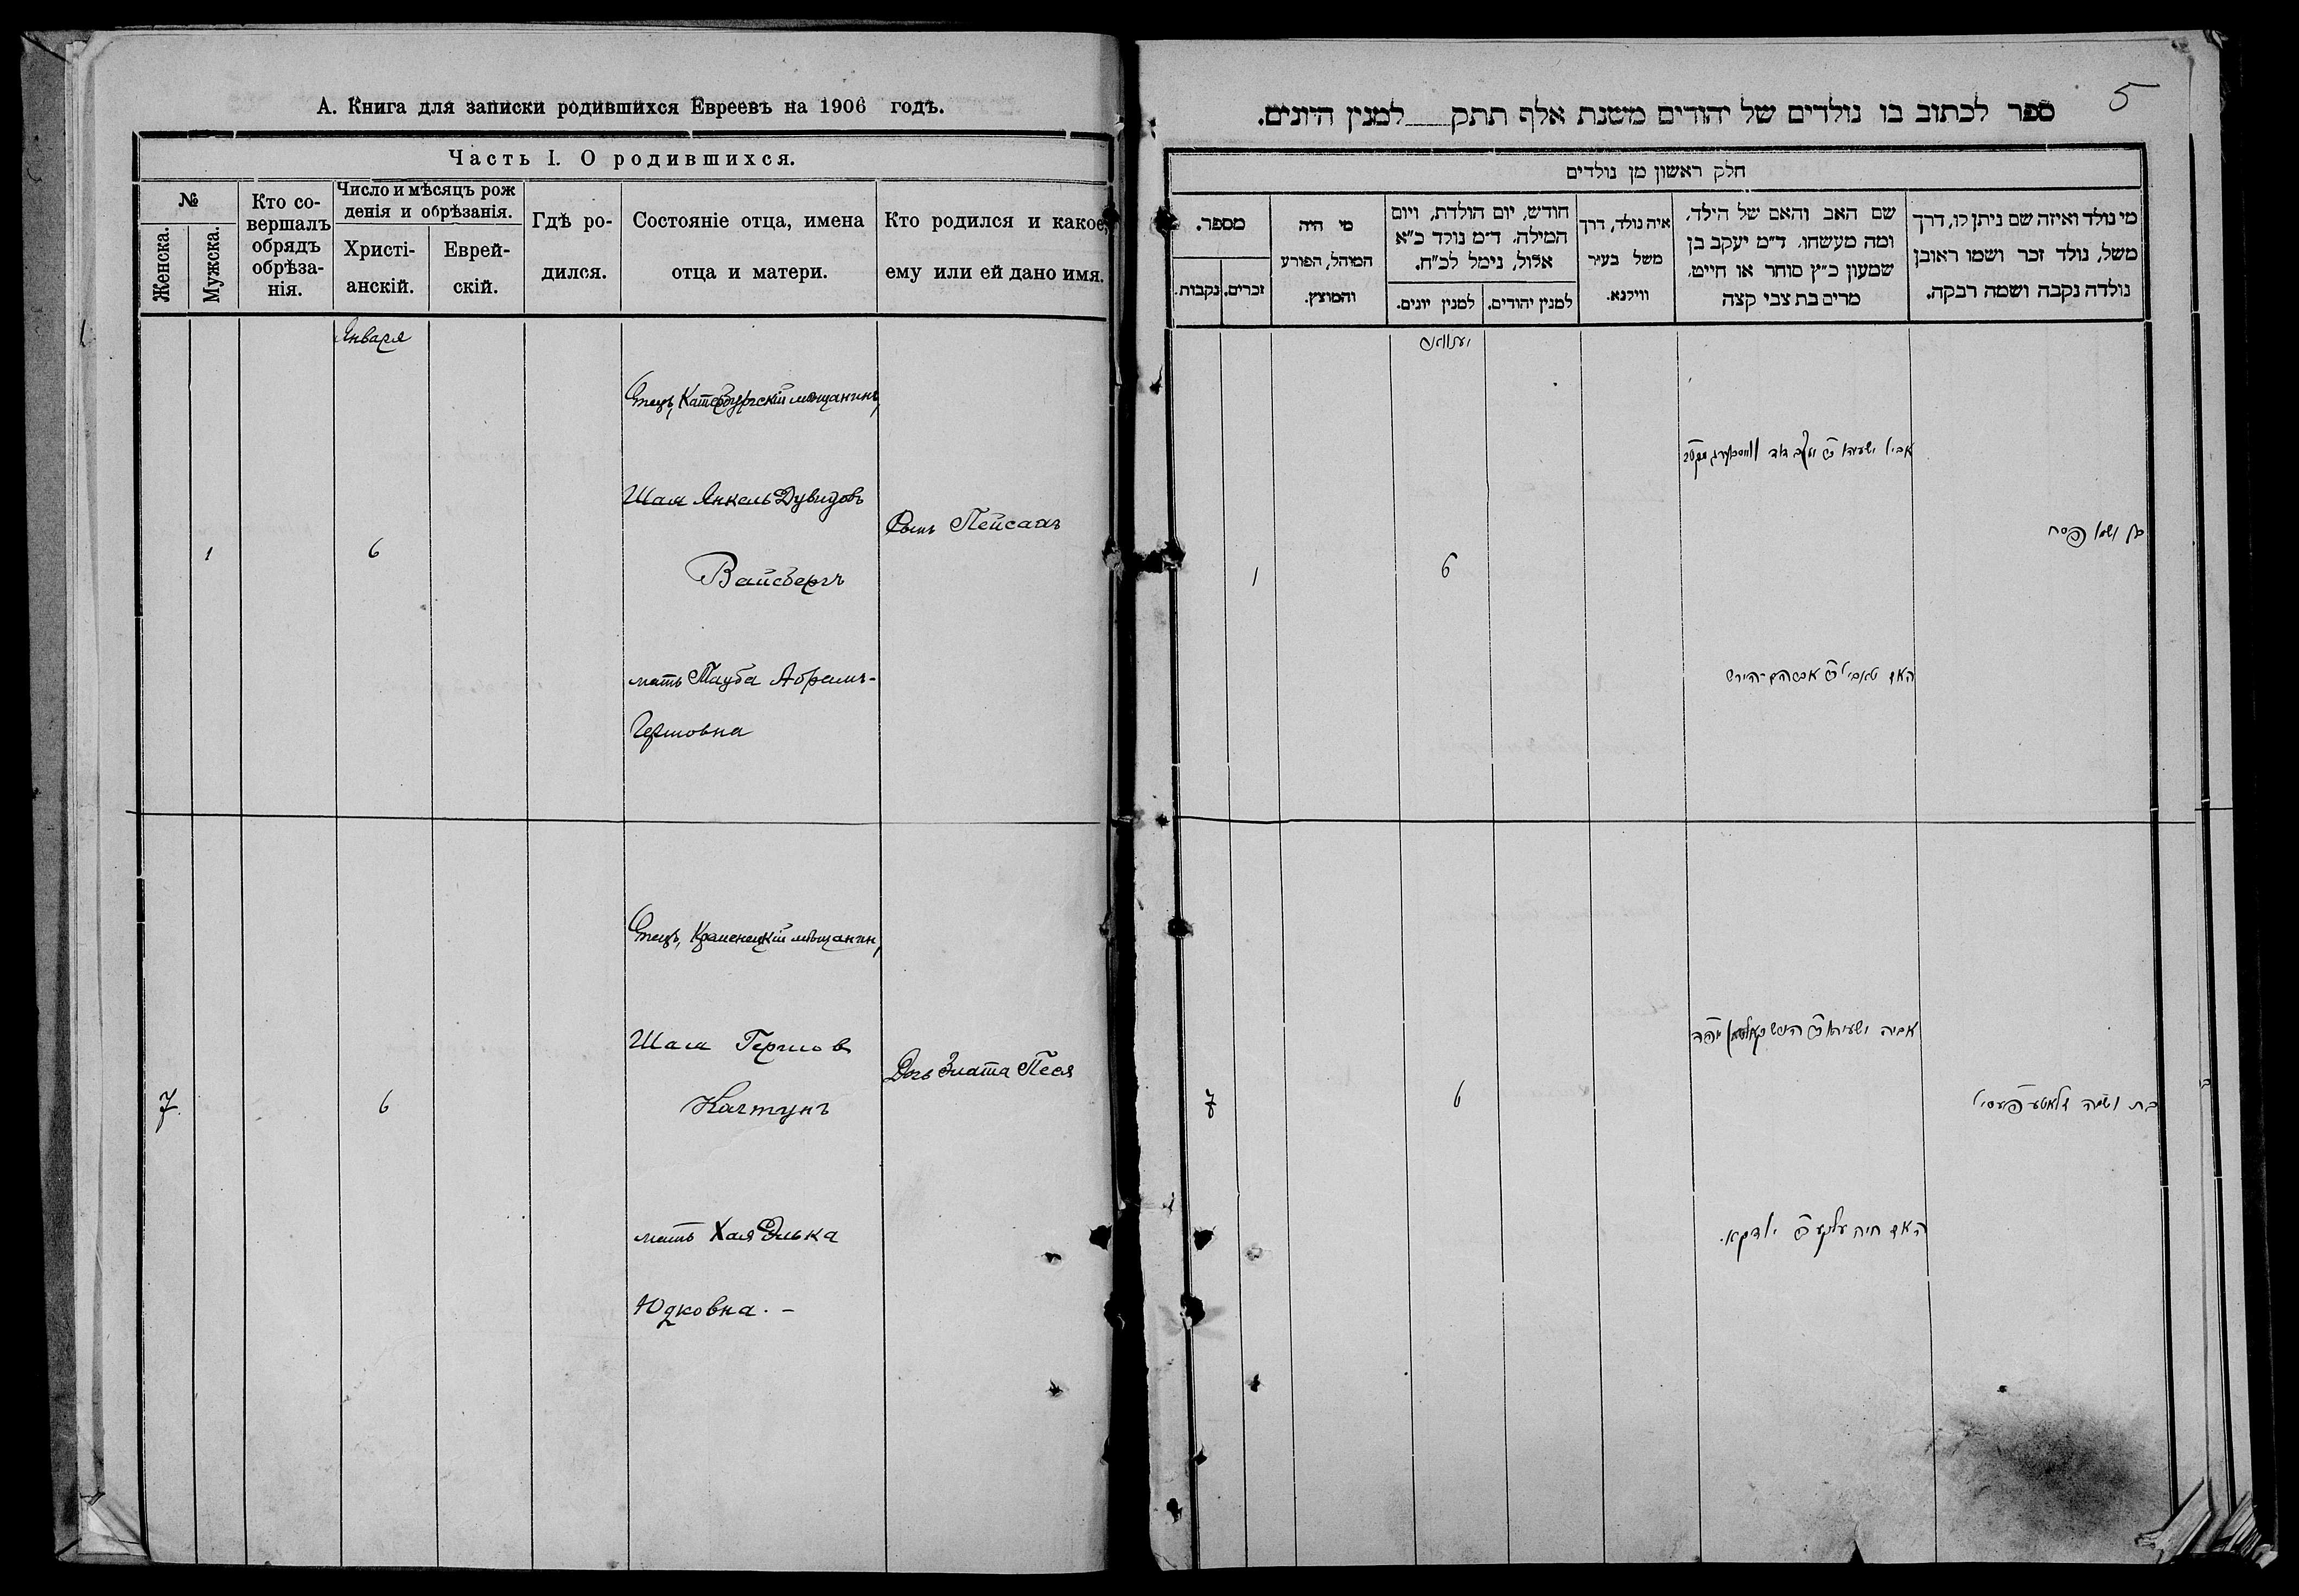 А. Книга для записки родившихся Евреевъ на 1906 годъ.
Часть I. О родившихся.
№
Женска.
Мужска.
Кто со-
вершалъ
обрядъ
обрѣза-
нія.
Число и мѣсяцъ рож
денія и обрѣзанія.
Христі-
анскій.
Еврей-
скій.
Гдѣ ро-
дился.
Состояніе отца, имена
отца и матери.
Кто родился и какое,
ему или ей дано имя.
Января
Отецъ, Катербургскій мѣщанинъ,
Шая Янкель Дувидовъ
Вайсбергъ
мать Тауба Абрамъ-
Гершовна
1
6
Сынъ Пейсахъ
Отецъ, Кременецкій мѣщанин,
Шая Гершов
Качтунъ
мать Хая Элька
Юдковна. –
7.
6
Дочь Злата Песя
5
ספר לכתוב בו נולדים של יהודים משנת אלף תתק למנין היונים.
חלק ראשון מן נולדים
מספר.
נקבות.
זכרים.
מי היה
המוהל, הפורע
והמוצץ.
חודש, יום הולדת, ויום
המילה. ד״מ נולד כ״א
אלול, נימל לכ״ח.
למנין יונים.
למנין יהודים.
איה נולד, דרך
משל בעיר
ווילנא.
שם האב והאם של הילד,
ומה מעשהו. ד״מ יעקב בן
שמעון כ״ץ סוחר או חייט.
מרים בת צבי קצה
מי נולד ואיזה שם ניתן לו, דרך
משל, נולד זכר ושמו ראובן
נולדה נקבה ושמה רבקה.
1
6
אביו ישעיהו ב״ר יעקב דוד
בן ושמו פסח
האם טאובי ב״ר אברהם-הירש
7
6
אביה ישעיהו ב״ר הירש
בת ושמה זלאטע פעסי
האם חיה עלקע ב״ר יודקא.